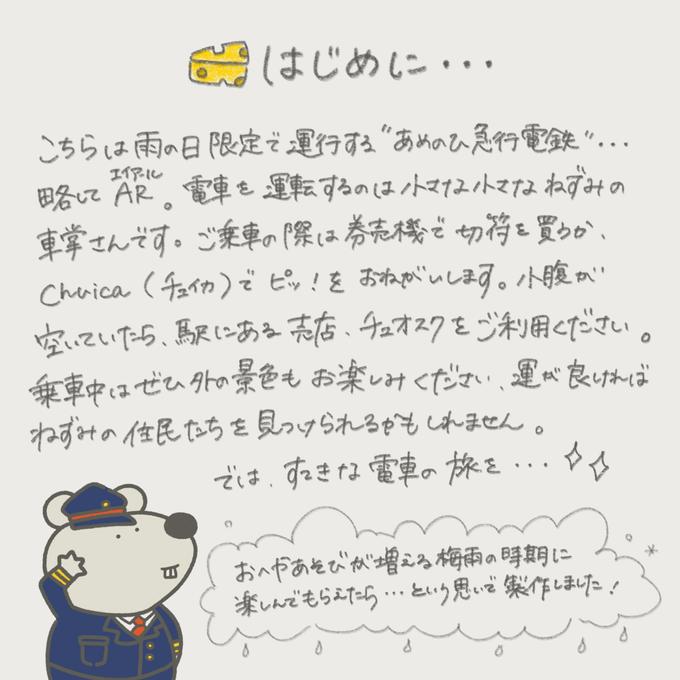 はじめに・・・
こちらは雨の日限定で運行する"あめのひ急行電鉄"・・・
エイアール
略してAR。電車を運転するのは小さな小さなねずみの
車掌さんです。ご乗車の際は券売機で切符を買うか、
Chuica（チュイカ）でピッ！をおねがいします。小腹が
空いていたら、駅にある売店、チュオスクをご利用ください。
乗車中はぜひ外の景色もお楽しみください、運が良ければ
ねずみの住民たちを見つけられるかもしれません。
では、すてきな電車の旅を・・・
おへやあそびが増える梅雨の時期に
楽しんでもらえたら・・・という思いで製作しました！